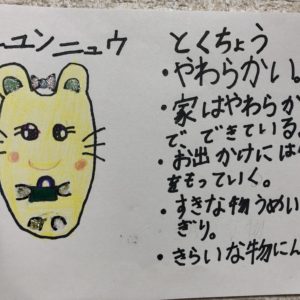 ユンニュウ
とくちょう
・やわらかい
・家はやわらか
で できている
・お出かけには
をもっていく。
・すきな物うめい
ぎり。
・きらいな物にん